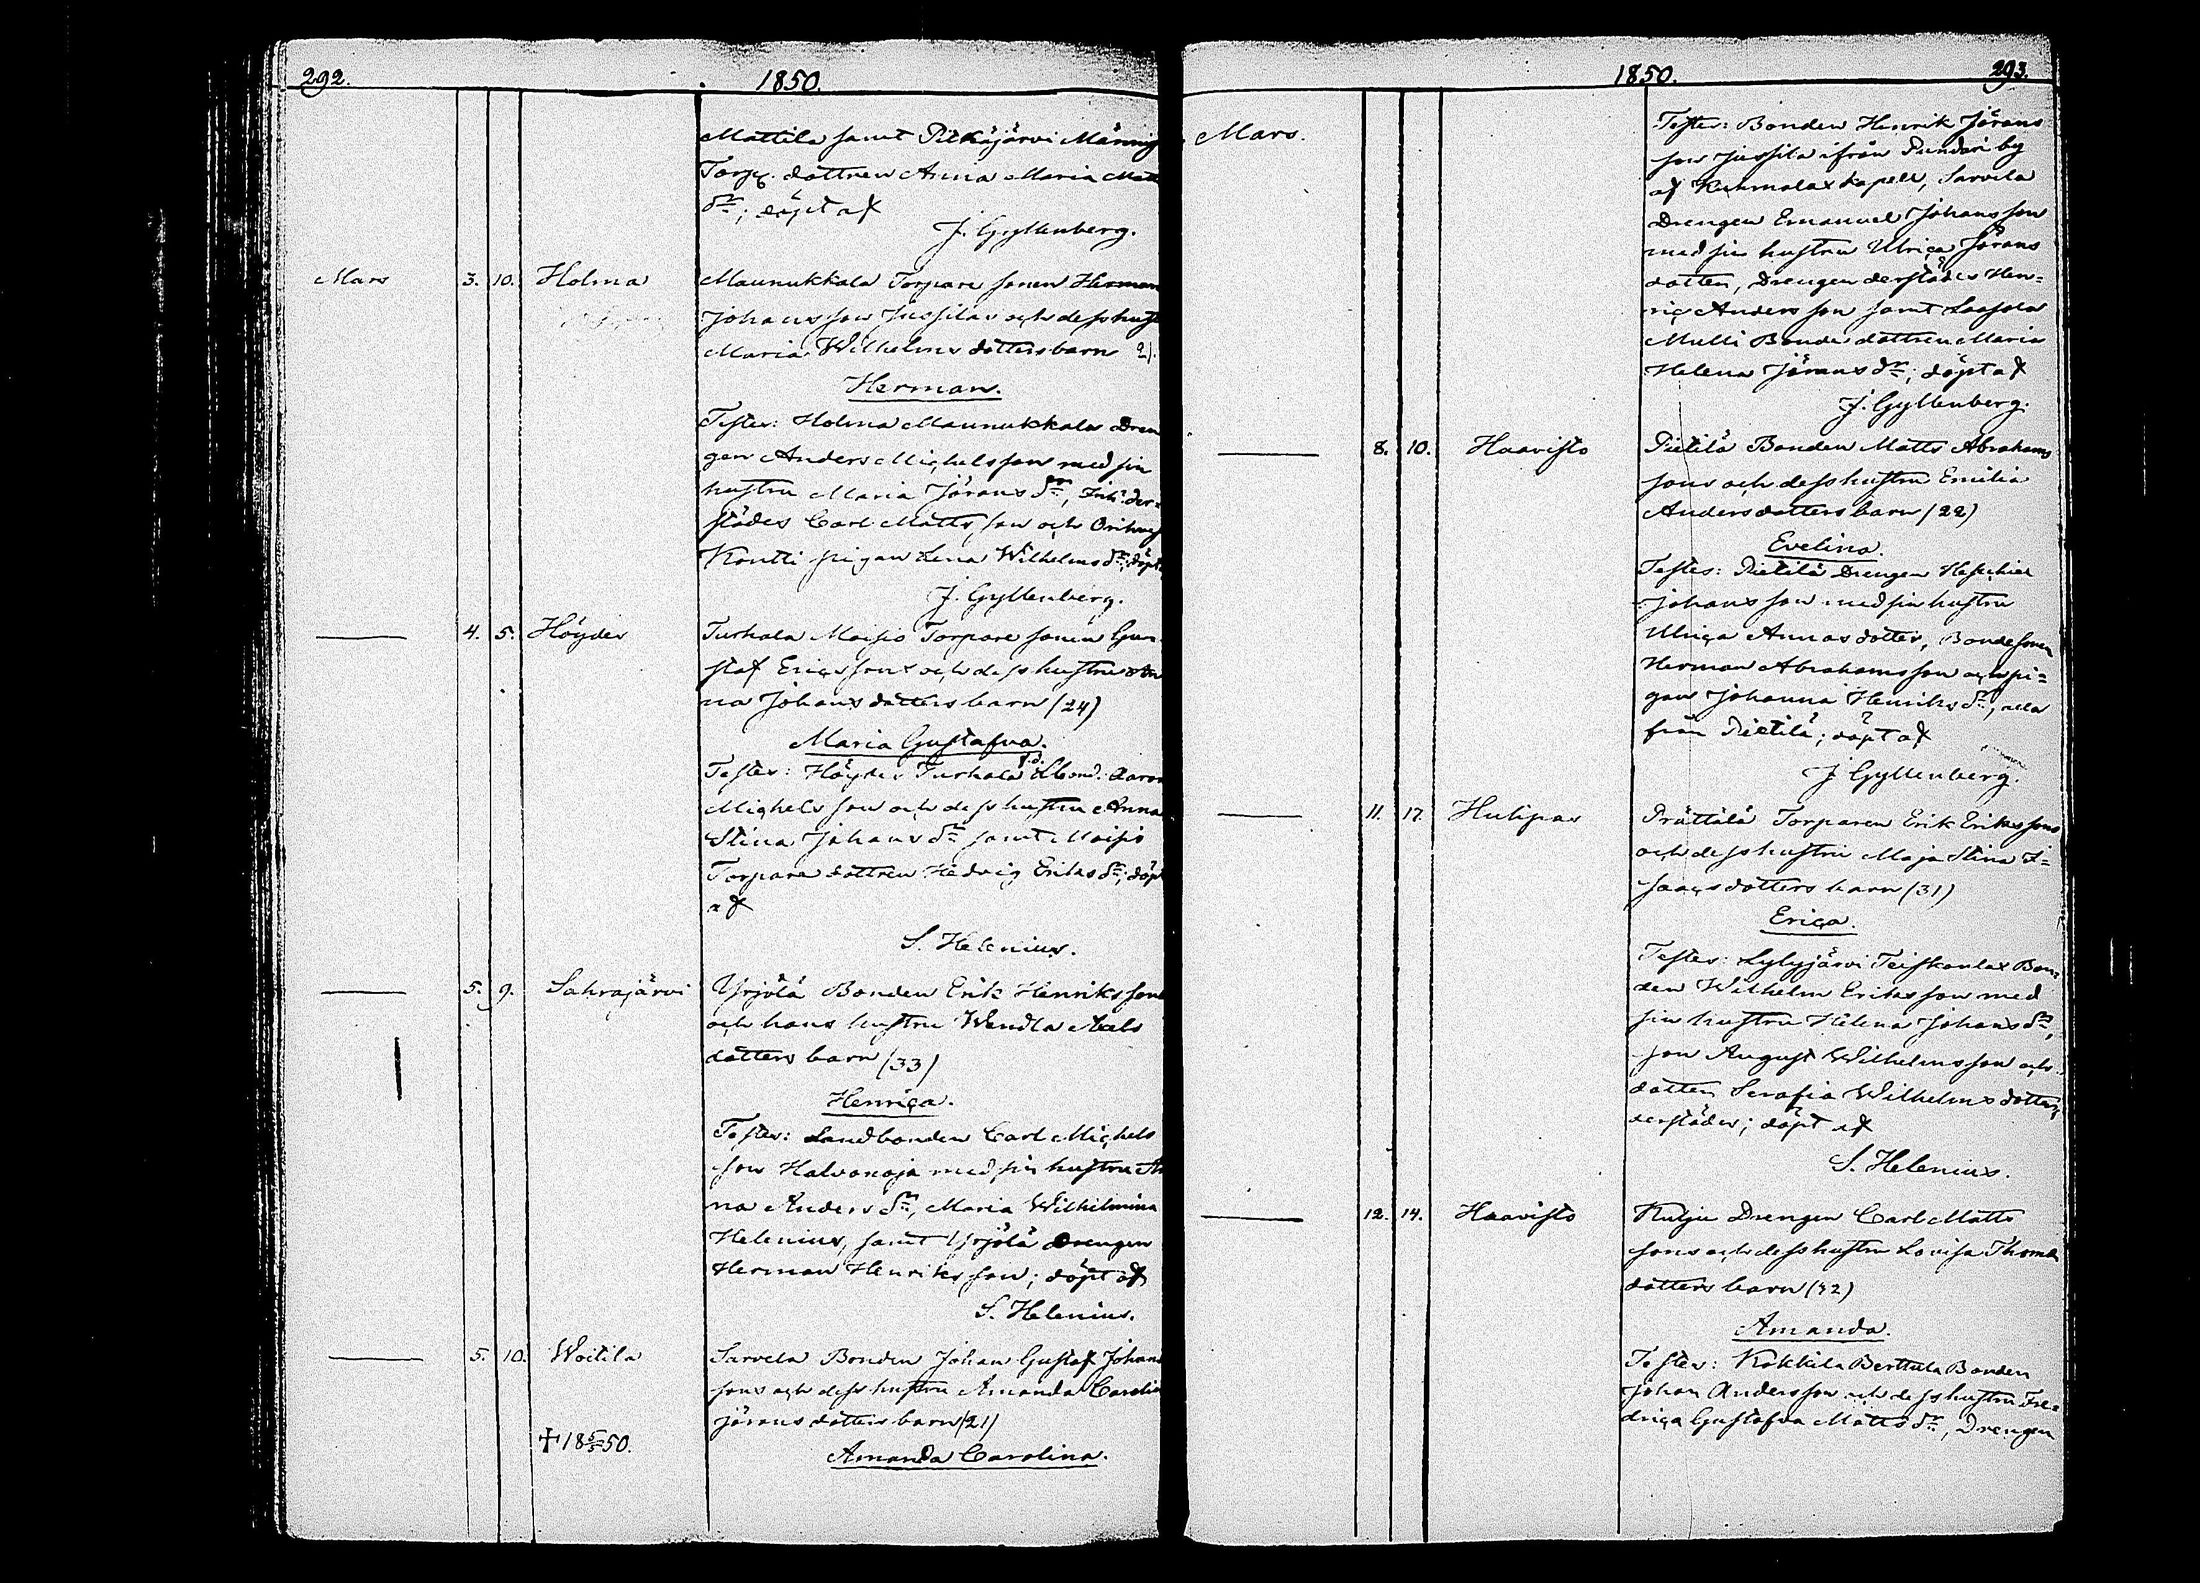 292. 1850.
Mattila samt Pitkäjärvi Männig
Torp. dottren Anna Maria Matts
dr; döpt af
J. Gyllenberg.
Mars 3. 10. Holma Maunukkala Torpare sonen Herman
Johansson Jussilas och dess hust
Maria Wilhelms dotters barn 21.
Herman.
Testes: Holma Maunukkala Dren
gen Anders Michelsson med sin
hustru Maria Jörans dr, Inh. der=
städes Carl Mattsson och Orihwesi
Kontti pigan Lena Wilhelms dr; döpt
J. Gyllenberg.
4. 5. Höydes Turkala Moisio Torpare sonen Gu
staf Ericssons och dess hustru An
na Johans dotters barn (24)
Maria Gustafva.
Testes: Höydes Turkala f.d. Lbond. Aaron
Michelsson och dess hustru Anna
Stina Johans dr samt Moisio
Torpare dottren Hedvig Eriks dr; döpt
af
S. Helenius.
5. 9. Sahrajärvi Yrjölä Bonden Erik Henrikssons
och hans hustru Wendla Abels
dotters barn (33)
Henrica.
Testes: Landbonden Carl Michels
son Halvanoja med sin hustru An
na Anders dr, Maria Wilhelmina
Helenius, samt Yrjölä Drengen
Herman Henriksson; döpt af
S. Helenius.
5. 10. Woitila Sarvela Bonden Johan Gustaf Johans
sons och dess hustru Amanda Carolin
Jörans dotters barn (21)
† 18 5/5 50. Amanda Carolina.
1850. 293.
Mars. Testes: Bonden Henrik Jörans
son Jussila ifrån Punderi by
af Kuhmalax kapell, Sarvela
Drengen Emanuel Johansson
med sin hustru Ulrica Jörans
dotter, Drengen derstädes Hen=
ric Andersson samt Laasola
Mulli Bonde dottren Maria
Helena Jörans dr; döpt af
J. Gyllenberg.
8. 10. Haavisto Pietilä Bonden Matts Abrahams
sons och dess hustru Emilia
Anders dotters barn (22)
Evelina.
Testes: Pietilä Drengen Heschiel
Johansson med sin hustru
Ulrica Annas dotter, Bondesonen
Herman Abrahamsson och pi=
gan Johanna Henriks dr, alla
från Pietilä; döpt af
J Gyllenberg.
11. 17. Hulipas Prättälä Torparen Erik Erikssons
och dess hustru Maja Stina I=
saacs dotters barn (31)
Erica.
Testes: Lylyjärvi Teiskonlax Bon=
den Wilhelm Eriksson med
sin hustru Helena Johans dr,
son August Wilhelmsson och
dotter Serafia Wilhelms dotter,
derstädes; döpt af
S. Helenius.
12. 14. Haavisto Kutju Drengen Carl Matts
sons och dess hustru Lovisa Thomas
dotters barn (32)
Amanda.
Testes: Kokkila Berttula Bonden
Johan Andersson och dess hustru Fre=
drica Gustafva Matts dr, Drengen